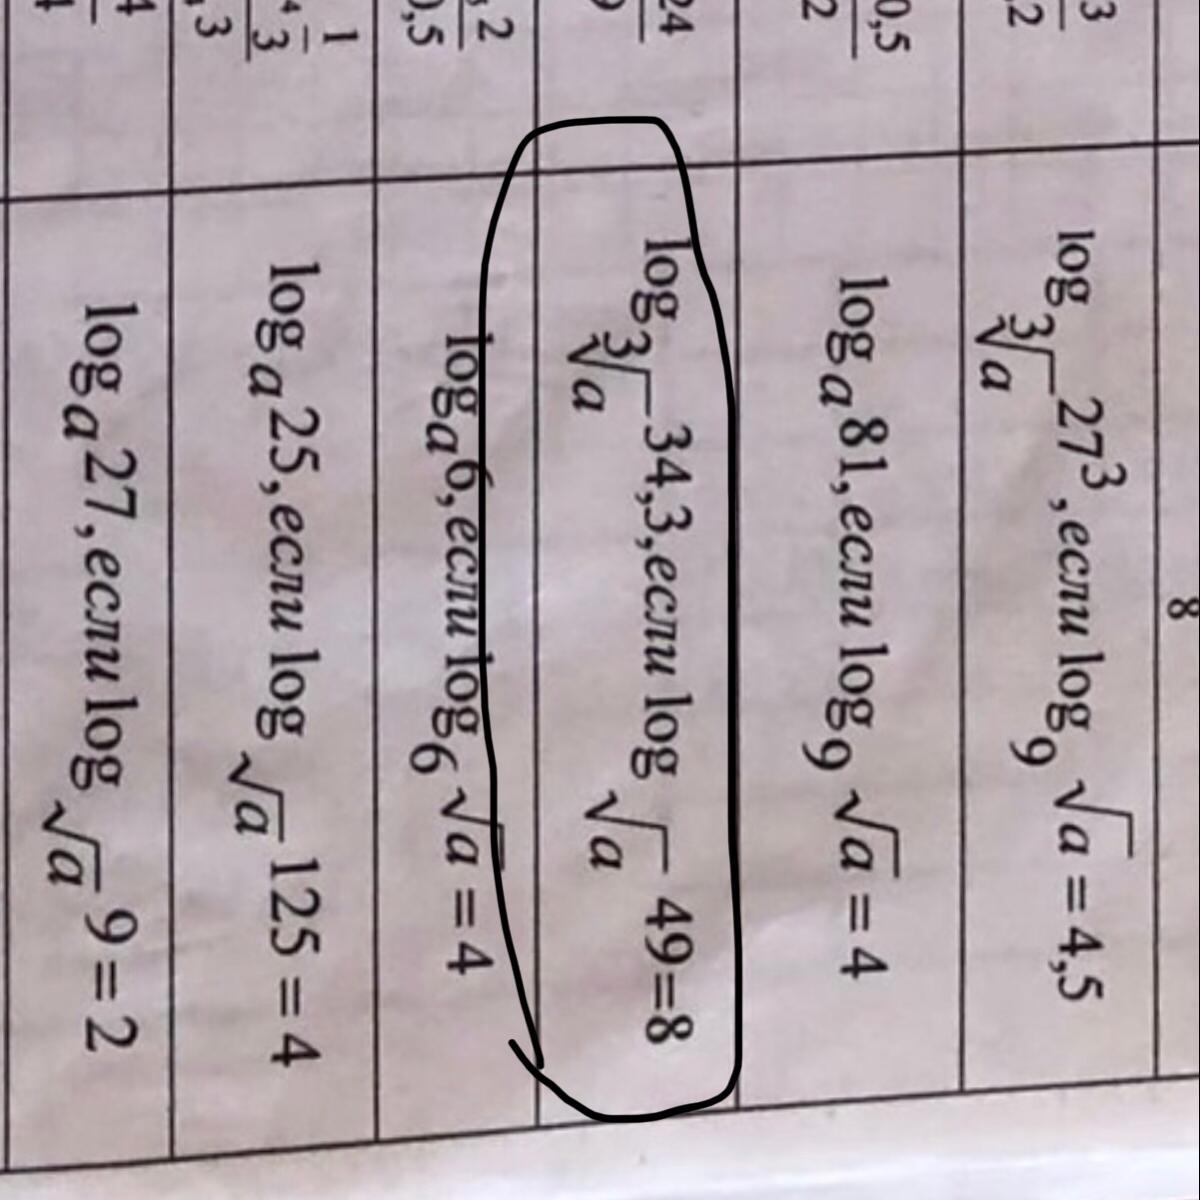 8
3
,2
log ∛a 27³, если log 9 √a = 4,5
0,5
2
log a 81, если log 9 √a = 4
24
9
log ∛a 34,3, если log √a 49=8
2
0,5
log a 6, если log 6 √a = 4
1
3
3
log a 25, если log √a 125 = 4
4
log a 27, если log √a 9 = 2